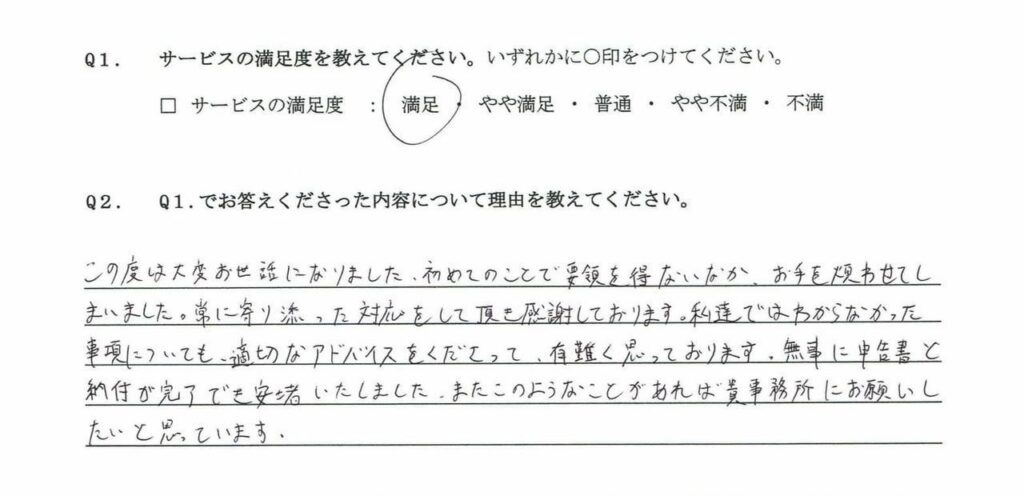 Q1. サービスの満足度を教えてください。いずれかに○印をつけてください。
□ サービスの満足度 : 満足 ・ やや満足 ・ 普通 ・ やや不満 ・ 不満
Q2. Q1.でお答えくださった内容について理由を教えてください。
この度は大変お世話になりました、初めてのことで要領を得ないなか、お手を煩わせてし
まいました。常に寄り添った対応をして頂き感謝しております。私達ではわからなかった
事項についても、適切なアドバイスをくださって、有難く思っております。無事に申告書と
納付が完了でき安堵いたしました。またこのようなことがあれば貴事務所にお願いし
たいと思っています。